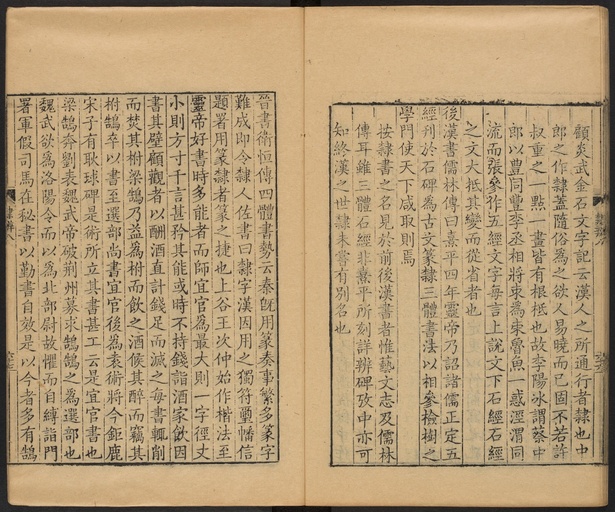 顧炎武金石文字記云漢人之所通行者隸也中
郎之作隸蓋隨俗為之欲人易曉而已固不若許
叔重之一點一畫皆有根柢也故李陽冰謂蔡中
郎以豊同豐李丞相將朿為束魯魚一惑涇渭同
流而張參作五經文字每言上說文下石經石經
之文大抵其變而從省者也
後漢書儒林傳曰熹平四年靈帝乃詔諸儒正定五
經刋於石碑為古文篆隸三體書法以相參檢樹之
學門使天下咸取則焉
按隸書之名見於前後漢書者惟藝文志及儒林
傳耳雖三體石經非熹平所刻詳辨碑攷中亦可
知終漢之世隸未嘗有別名也
晉書衛恒傳四體書勢云秦旣用篆奏事繁多篆字
難成卽令隸人佐書曰隸字漢因用之獨符璽幡信
題署用篆隸者篆之捷也上谷王次仲始作楷法至
靈帝好書時多能者而師宜官為最大則一字徑丈
小則方寸千言甚矜其能或時不持錢詣酒家飲因
書其壁顧觀者以酬酒直計錢足而滅之每書輒削
而焚其柎梁鵠乃益為柎而飲之酒候其醉而竊其
柎鵠卒以書至選部尚書宜官後為袁術將今鉅鹿
宋子有耿球碑是術所立其書甚工云是宜官書也
梁鵠奔劉表魏武帝破荆州募求鵠鵠之為選部也
魏武欲為洛陽令而以為北部尉故懼而自縛詣門
署軍假司馬在秘書以勤書自效是以今者多有鵠